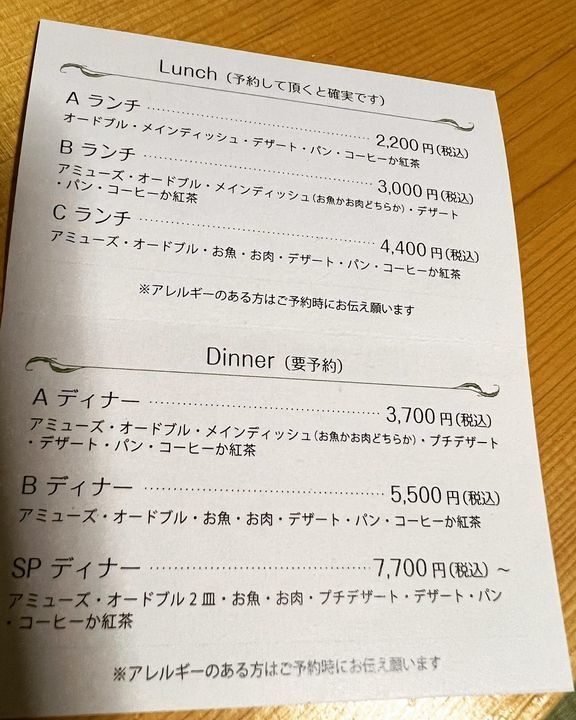 Lunch（予約して頂くと確実です）
A ランチ 2,200円(税込)
オードブル・メインディッシュ・デザート・パン・コーヒーか紅茶
B ランチ 3,000円(税込)
アミューズ・オードブル・メインディッシュ(お魚かお肉どちらか)・デザート
・パン・コーヒーか紅茶
C ランチ 4,400円(税込)
アミューズ・オードブル・お魚・お肉・デザート・パン・コーヒーか紅茶
※アレルギーのある方はご予約時にお伝え願います
Dinner（要予約）
A ディナー 3,700円(税込)
アミューズ・オードブル・メインディッシュ(お魚かお肉どちらか)・プチデザート
・デザート・パン・コーヒーか紅茶
B ディナー 5,500円(税込)
アミューズ・オードブル・お魚・お肉・デザート・パン・コーヒーか紅茶
SP ディナー 7,700円(税込)～
アミューズ・オードブル2皿・お魚・お肉・プチデザート・デザート・パン
・コーヒーか紅茶
※アレルギーのある方はご予約時にお伝え願います